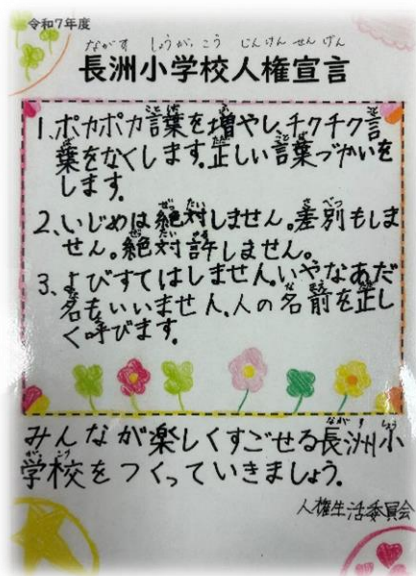 令和7年度
ながす しょうがっこう じんけん せんげん
長洲小学校人権宣言
1、ポカポカ言葉を増やし、チクチク言
葉をなくします。正しい言葉づかいを
します。
2、いじめは絶対しません。差別もしま
せん。絶対許しません。
3、よびすてはしません。いやなあだ
名もいいません。人の名前を正し
く呼びます。
みんなが楽しくすごせる長洲小
学校をつくっていきましょう。
人権生活委員会